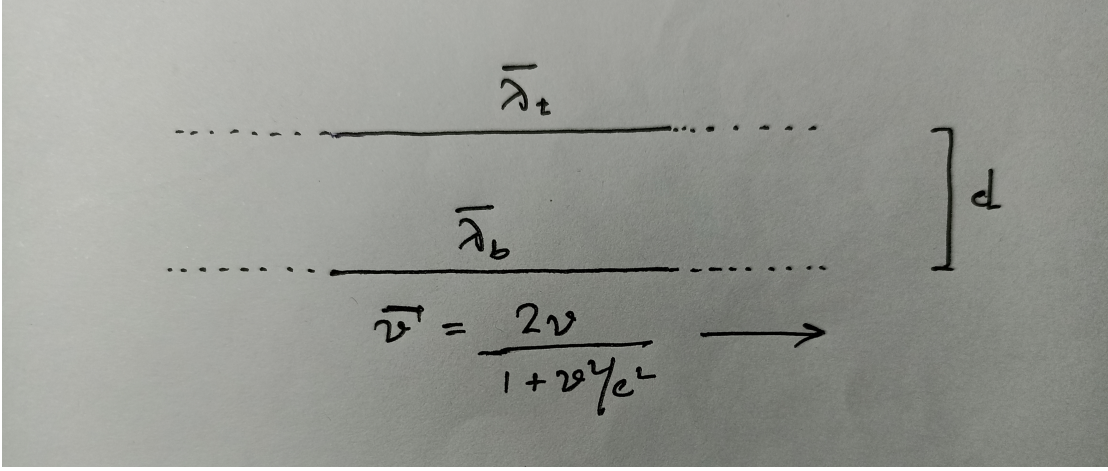 λ̅ₜ
λ̅_b
d
v̅ = 2v / (1 + v²/c²) →